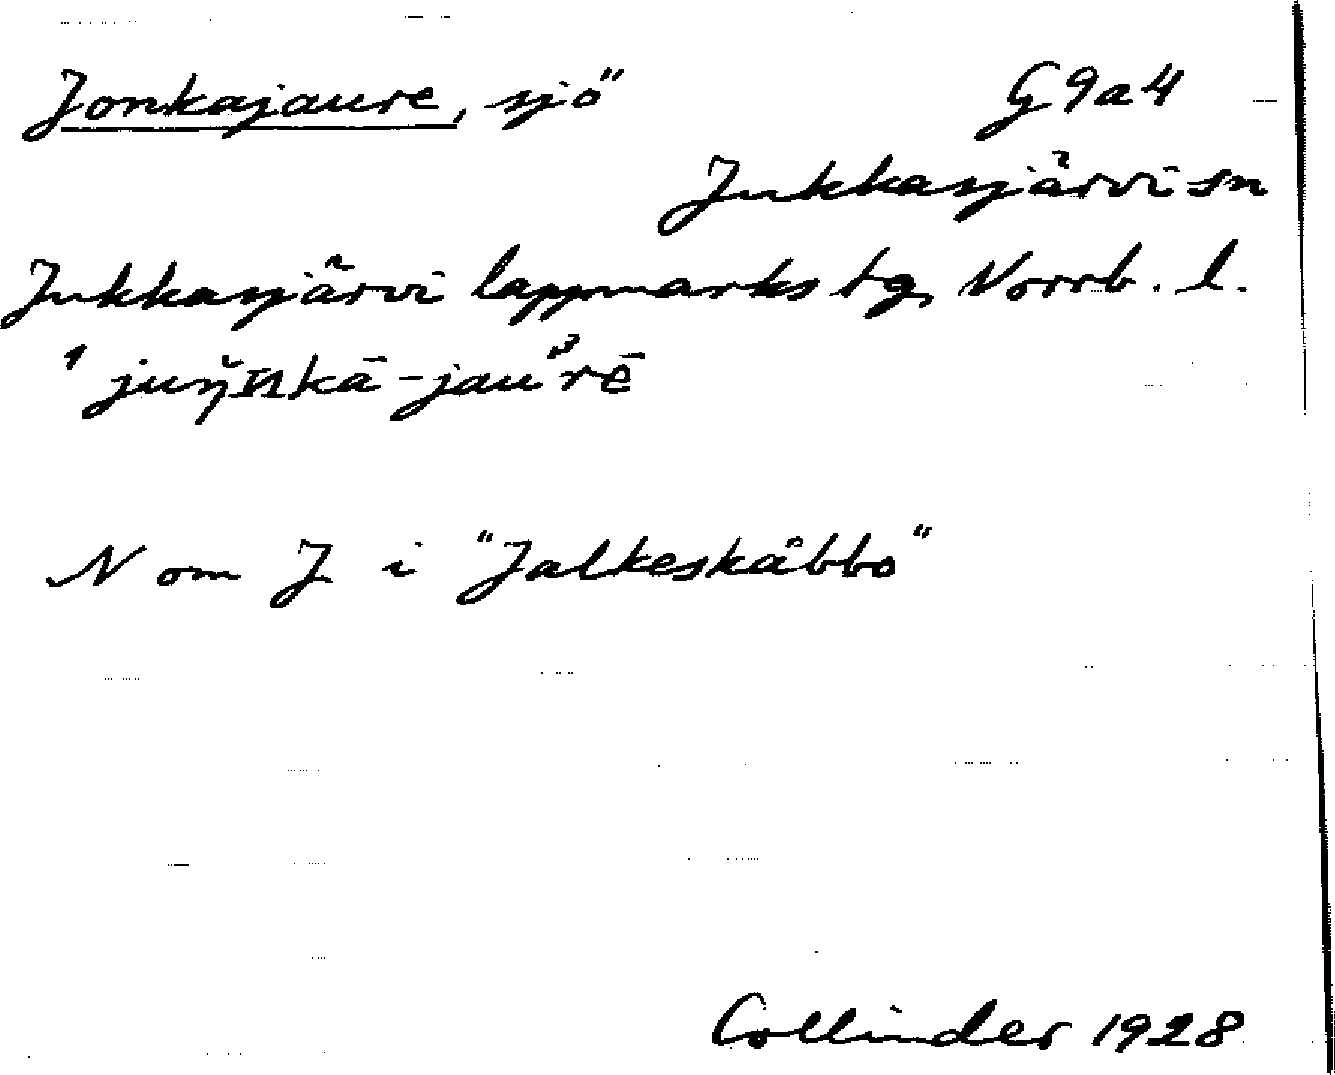 Jonkajaure, sjö G9a4
Jukkasjärvi sn
Jukkasjärvi lappmarks tg, Norrb. l.
N om J i "Jalkeskäbbo"
Collinder 1928